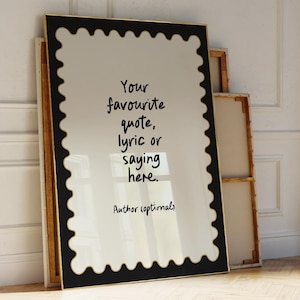 Your
favourite
quote,
lyric or
saying
here.
Author (optional)